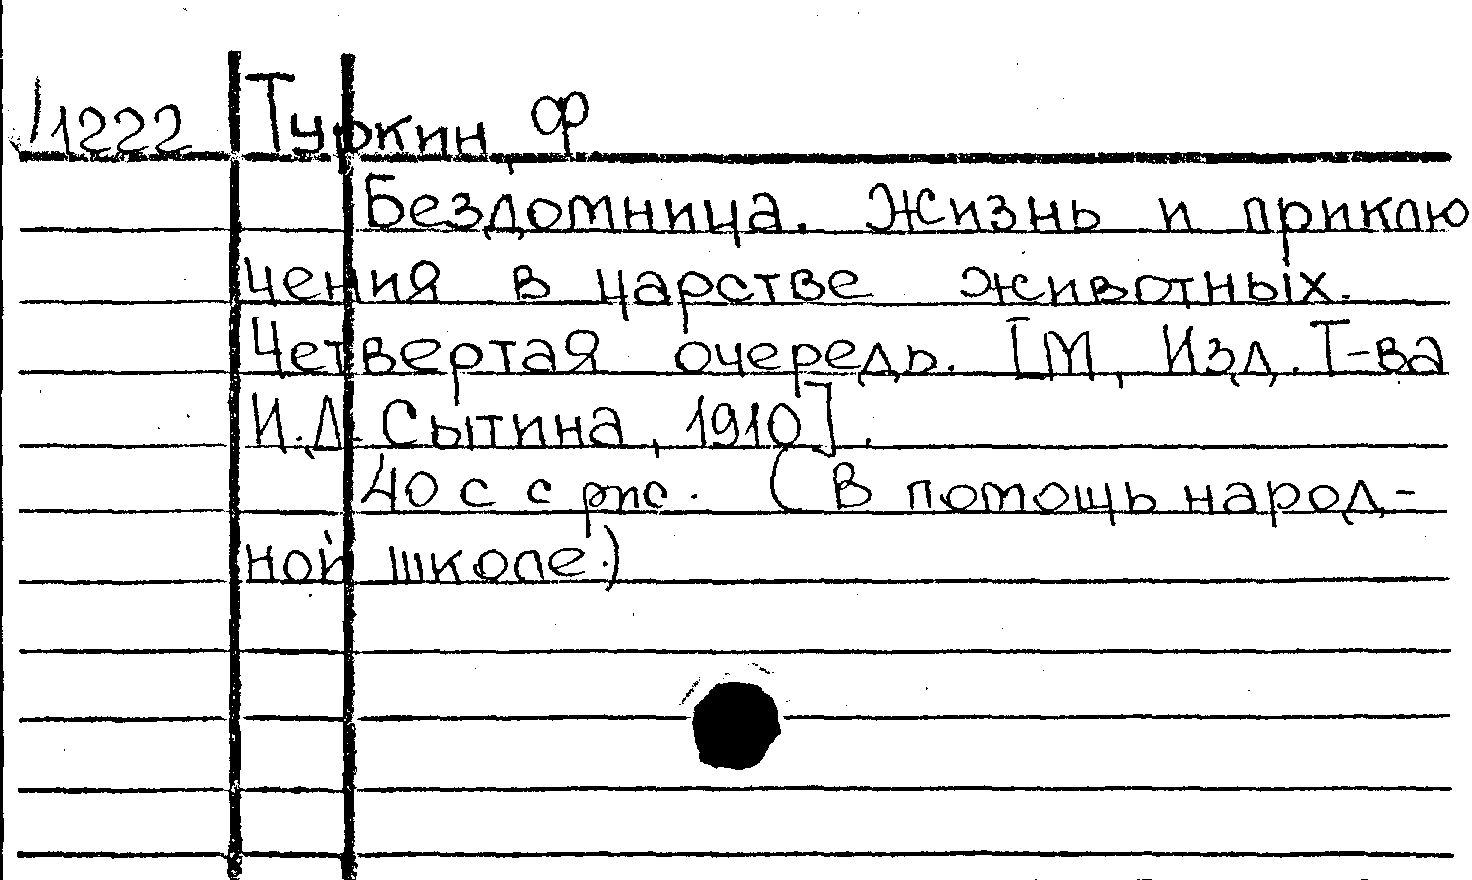 /1222 Туркин, Ф
Бездомница. Жизнь и приклю
чения в царстве животных.
Четвертая очередь. [М, Изд. Т-ва
И.Д. Сытина, 1910].
40 с с рис. (В помощь народ-
ной школе.)